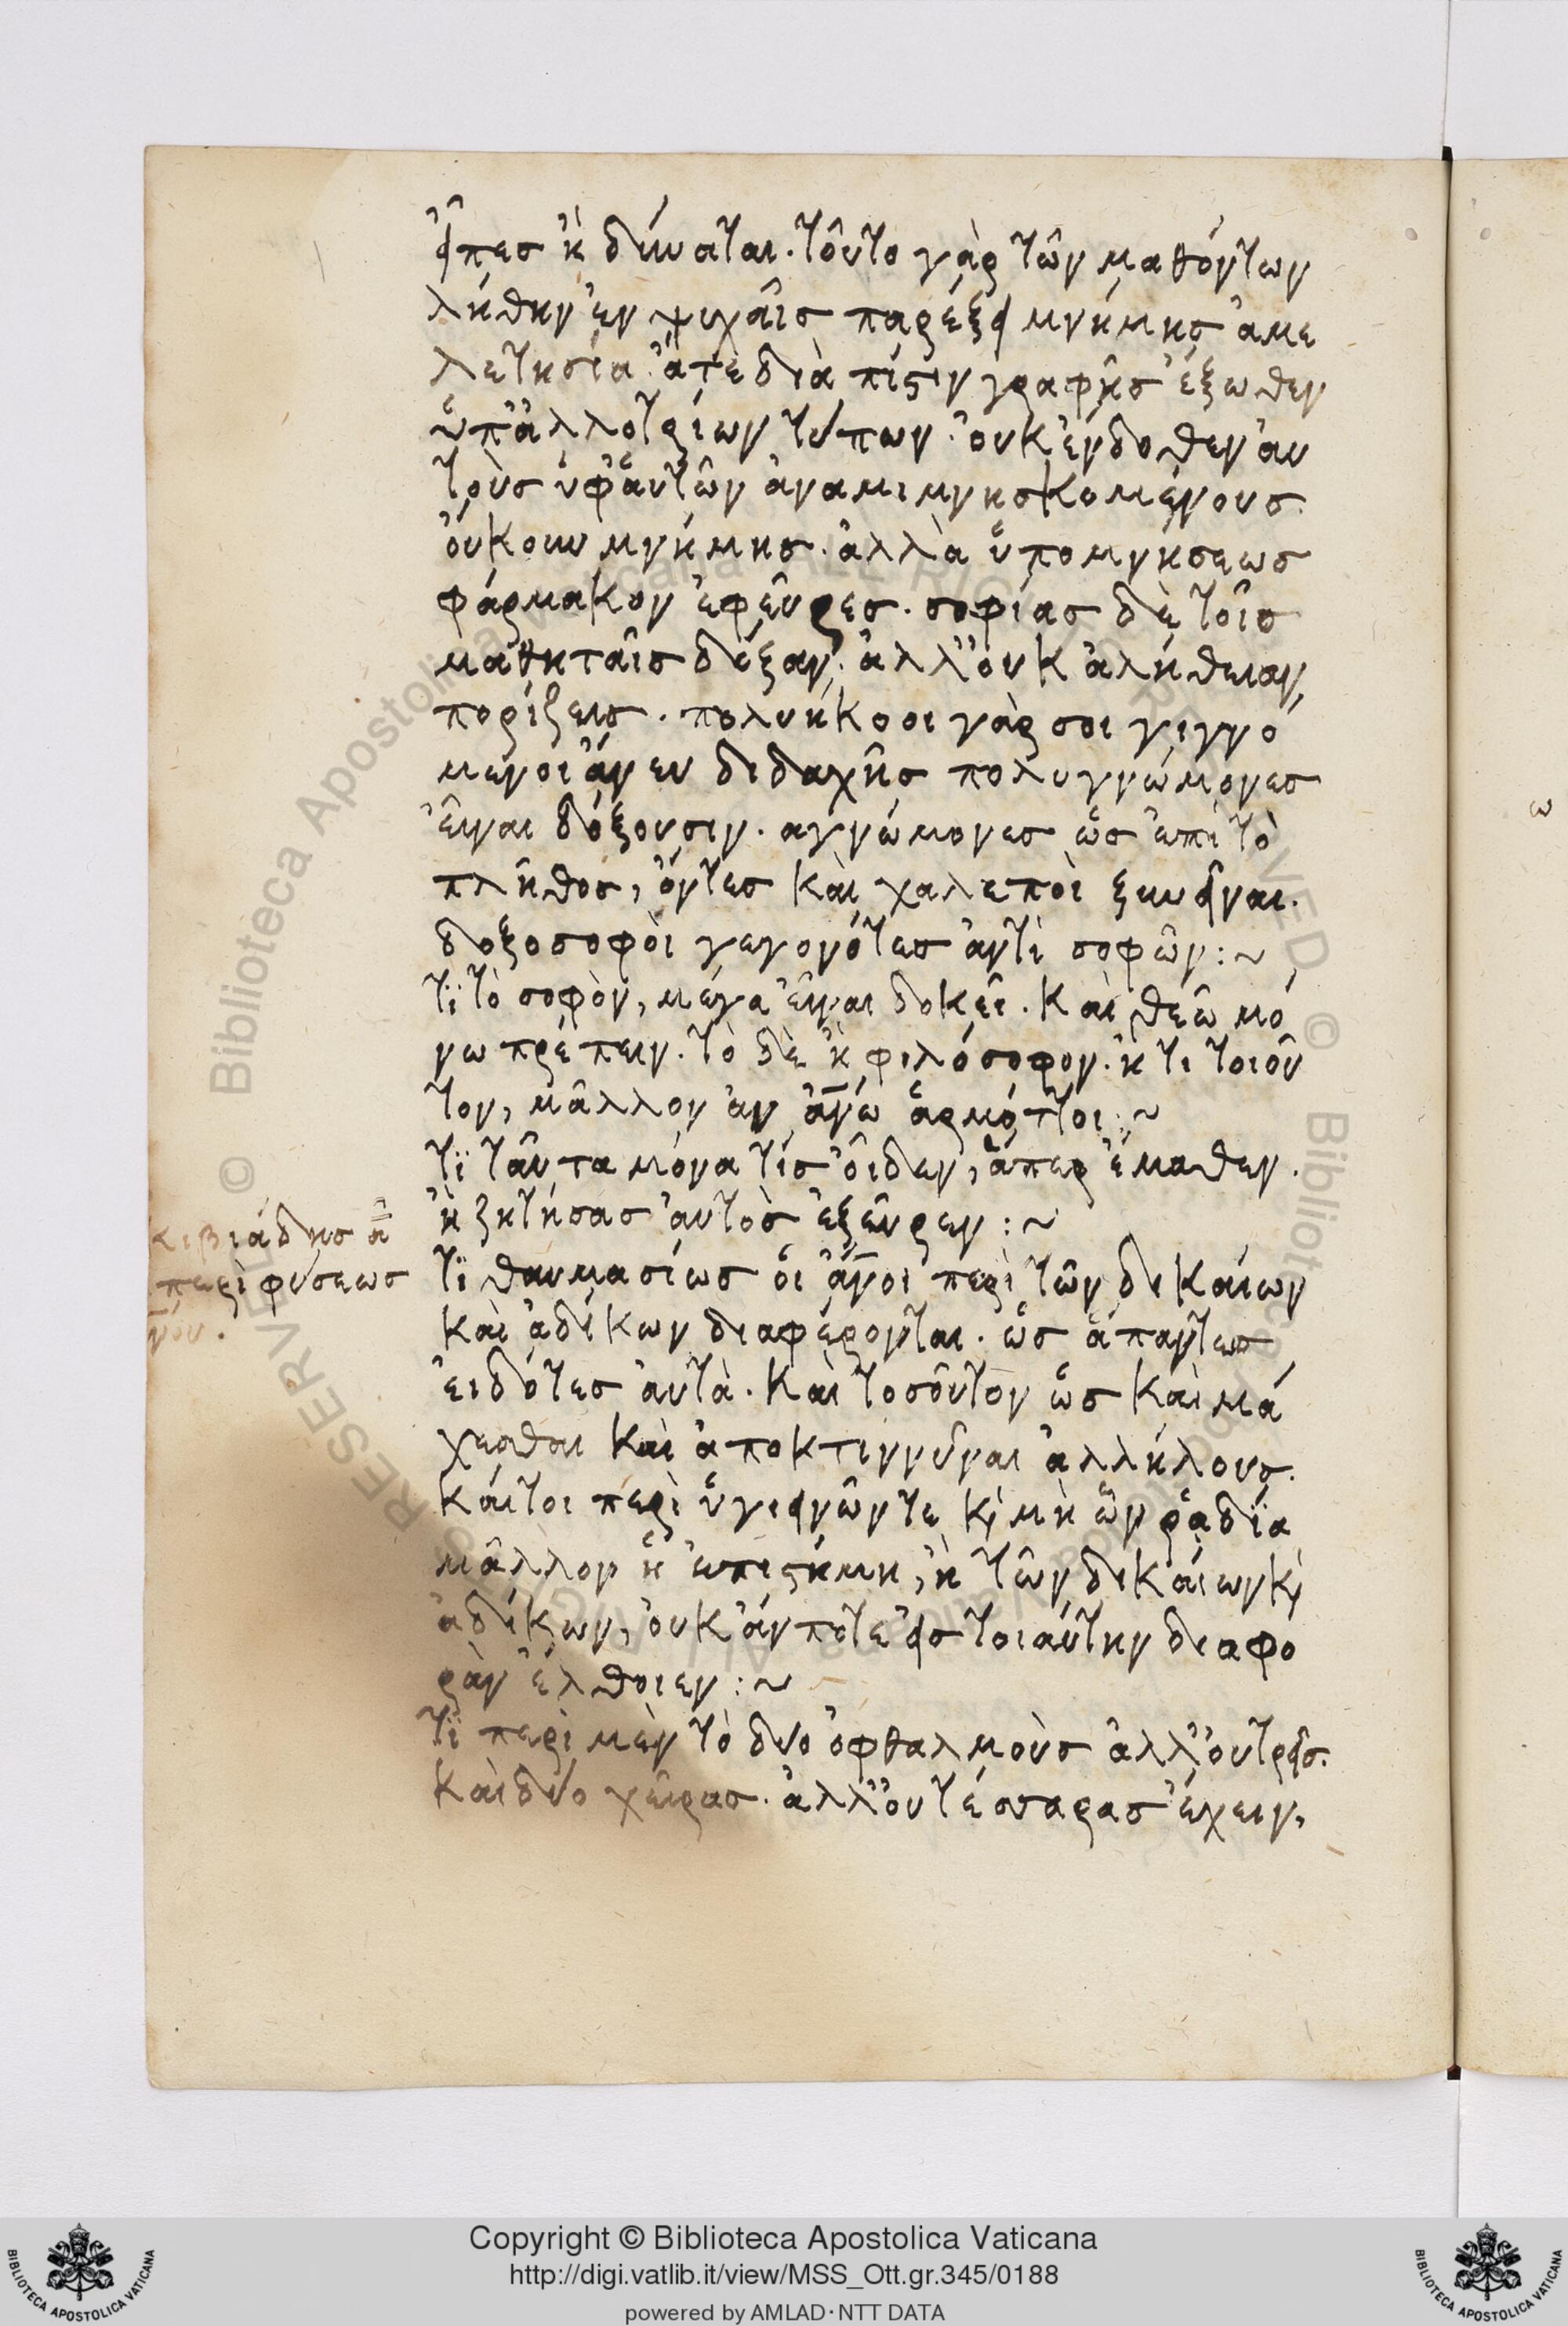 εἶπες ἢ δύναται. τοῦτο γὰρ τῶν μαθόντων
λήθην ἐν ψυχαῖς παρέξει μνήμης ἀμε
λετησία. ἅτε διὰ πίστιν γραφῆς ἔξωθεν
ὑπ' ἀλλοτρίων τύπων. οὐκ ἔνδοθεν αὐ
τοὺς ὑφ' αὑτῶν ἀναμιμνησκομένους.
οὔκουν μνήμης. ἀλλὰ ὑπομνήσεως
φάρμακον ἐφεῦρες. σοφίας δὲ τοῖς
μαθηταῖς δόξαν. ἀλλ' οὐκ ἀλήθειαν,
πορίζεις. πολυήκοοι γάρ σοι γιγνό
μενοι ἄνευ διδαχῆς πολυγνώμονες
εἶναι δόξουσιν. αγνώμονες ὡς ἐπὶ τὸ
πλῆθος, ὄντες καὶ χαλεποὶ ξυνεῖναι.
δοξοσοφοὶ γεγονότες ἀντὶ σοφῶν:~
τϊ τὸ σοφὸν, μέγα εἶναι δοκεῖ. καὶ θεῶ μό
νω πρέπειν. τὸ δὲ ἢ φιλόσοφον. ἤ τι τοιοῦ
τον, μᾶλλον ἂν ἀνω ἁρμόττοι:~
τϊ ταῦτα μόνα τίς οἶδεν, ἅπερ ἔμαθεν.
ἢ ζητήσας αὐτὸς ἐξεῦρεν:~
κιβιάδης ἢ
περὶ φύσεως
νου.
τϊ θαυμασίως οἱ ἀνοι περὶ τῶν δικαίων
καὶ ἀδίκων διαφέρονται. ὡς ἅπαντες
εἰδότες αὐτὰ. καὶ τοσοῦτον ὡς καὶ μά
χεσθαι καὶ ἀποκτιννῦναι ἀλλήλους.
καίτοι περὶ ὑγιεινῶν τε κ μὴ ὧν ῥαδία
μᾶλλον ἡ ἐπιστήμη, ἢ τῶν δικαίων κ
ἀδίκων, οὐκ ἄν ποτε εἰς τοιαύτην διαφο
ρὰν ἔλθοιεν:~
τϊ περὶ μὲν τὸ δύο ὀφθαλμοὺς ἀλλ' οὐ τρεῖς.
καὶ δύο χεῖρας. ἀλλ' οὐ τέσσαρας ἔχειν,
ω
Copyright © Biblioteca Apostolica Vaticana
http://digi.vatlib.it/view/MSS_Ott.gr.345/0188
powered by AMLAD·NTT DATA